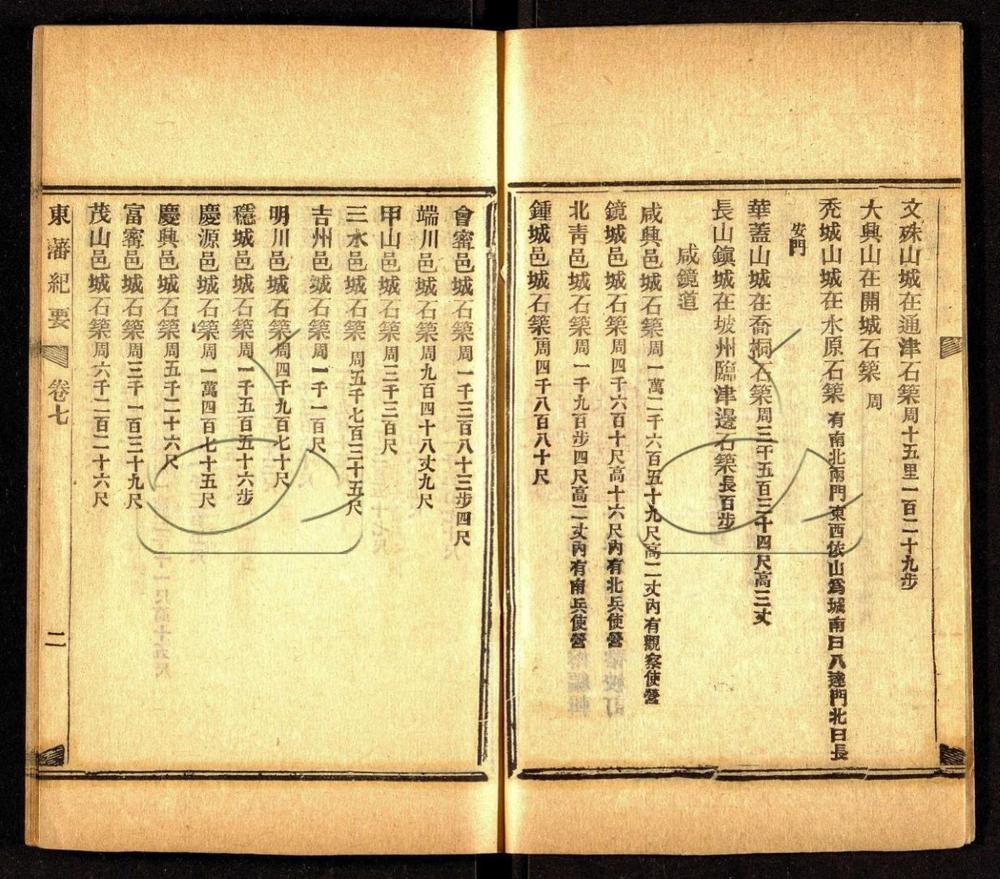 文硃山城在通津石築周十五里一百二十九步
大興山在開城石築周
禿城山城在水原石築有南北兩門東西依山爲城南曰八達門北曰長
安門
華蓋山城在喬桐石築周三千五百三十四尺高三丈
長山鎭城在坡州臨津邊石築長百步
咸鏡道
咸興邑城石築周一萬二千六百五十九尺高二丈內有觀察使營
鏡城邑城石築周四千六百十尺高十六尺內有北兵使營
北靑邑城石築周一千九百步四尺高二丈內有南兵使營
鍾城邑城石築周四千八百八十尺
會寗邑城石築周一千三百八十三步四尺
端川邑城石築周九百四十八丈九尺
甲山邑城石築周二千三百尺
三水邑城石築周五千七百三十五尺
吉州邑城石築周一千一百尺
明川邑城石築周四千九百七十尺
穩城邑城石築周一千五百五十六步
慶源邑城石築周一萬四百七十五尺
慶興邑城石築周五千二十六尺
富寗邑城石築周三千一百三十九尺
茂山邑城石築周六千二百二十六尺
東藩紀要 卷七 二